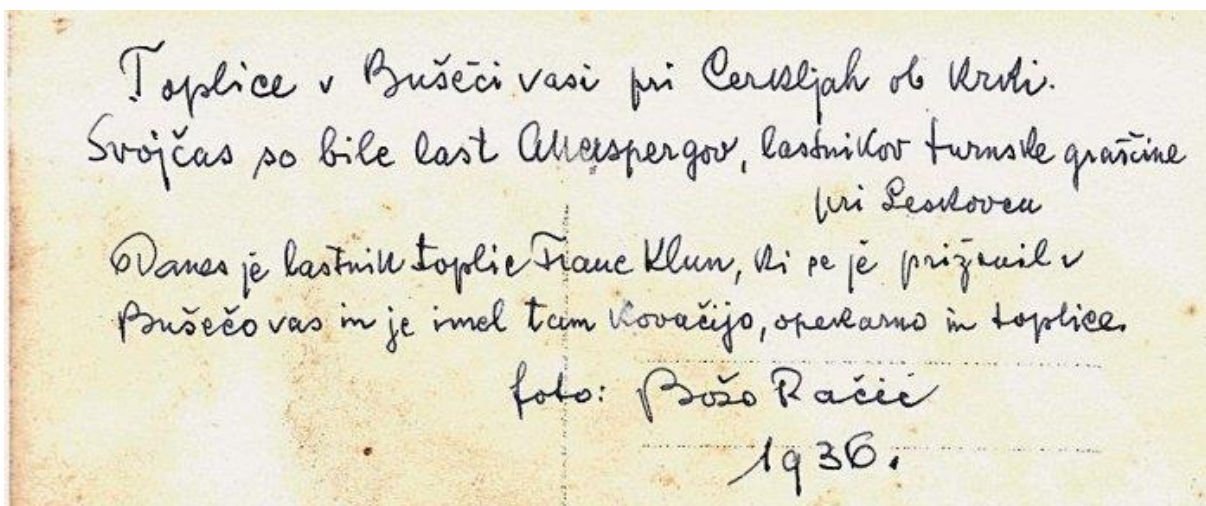 Toplice v Bušeči vasi pri Cerkljah ob Krki.
Svojčas so bile last Auerspergov, lastnikov turnske graščine
pri Leskovcu
Danes je lastnik toplic Franc Klun, ki se je priženil v
Bušečo vas in je imel tam kovačijo, opekarno in toplice.
foto: Božo Račič
1936.